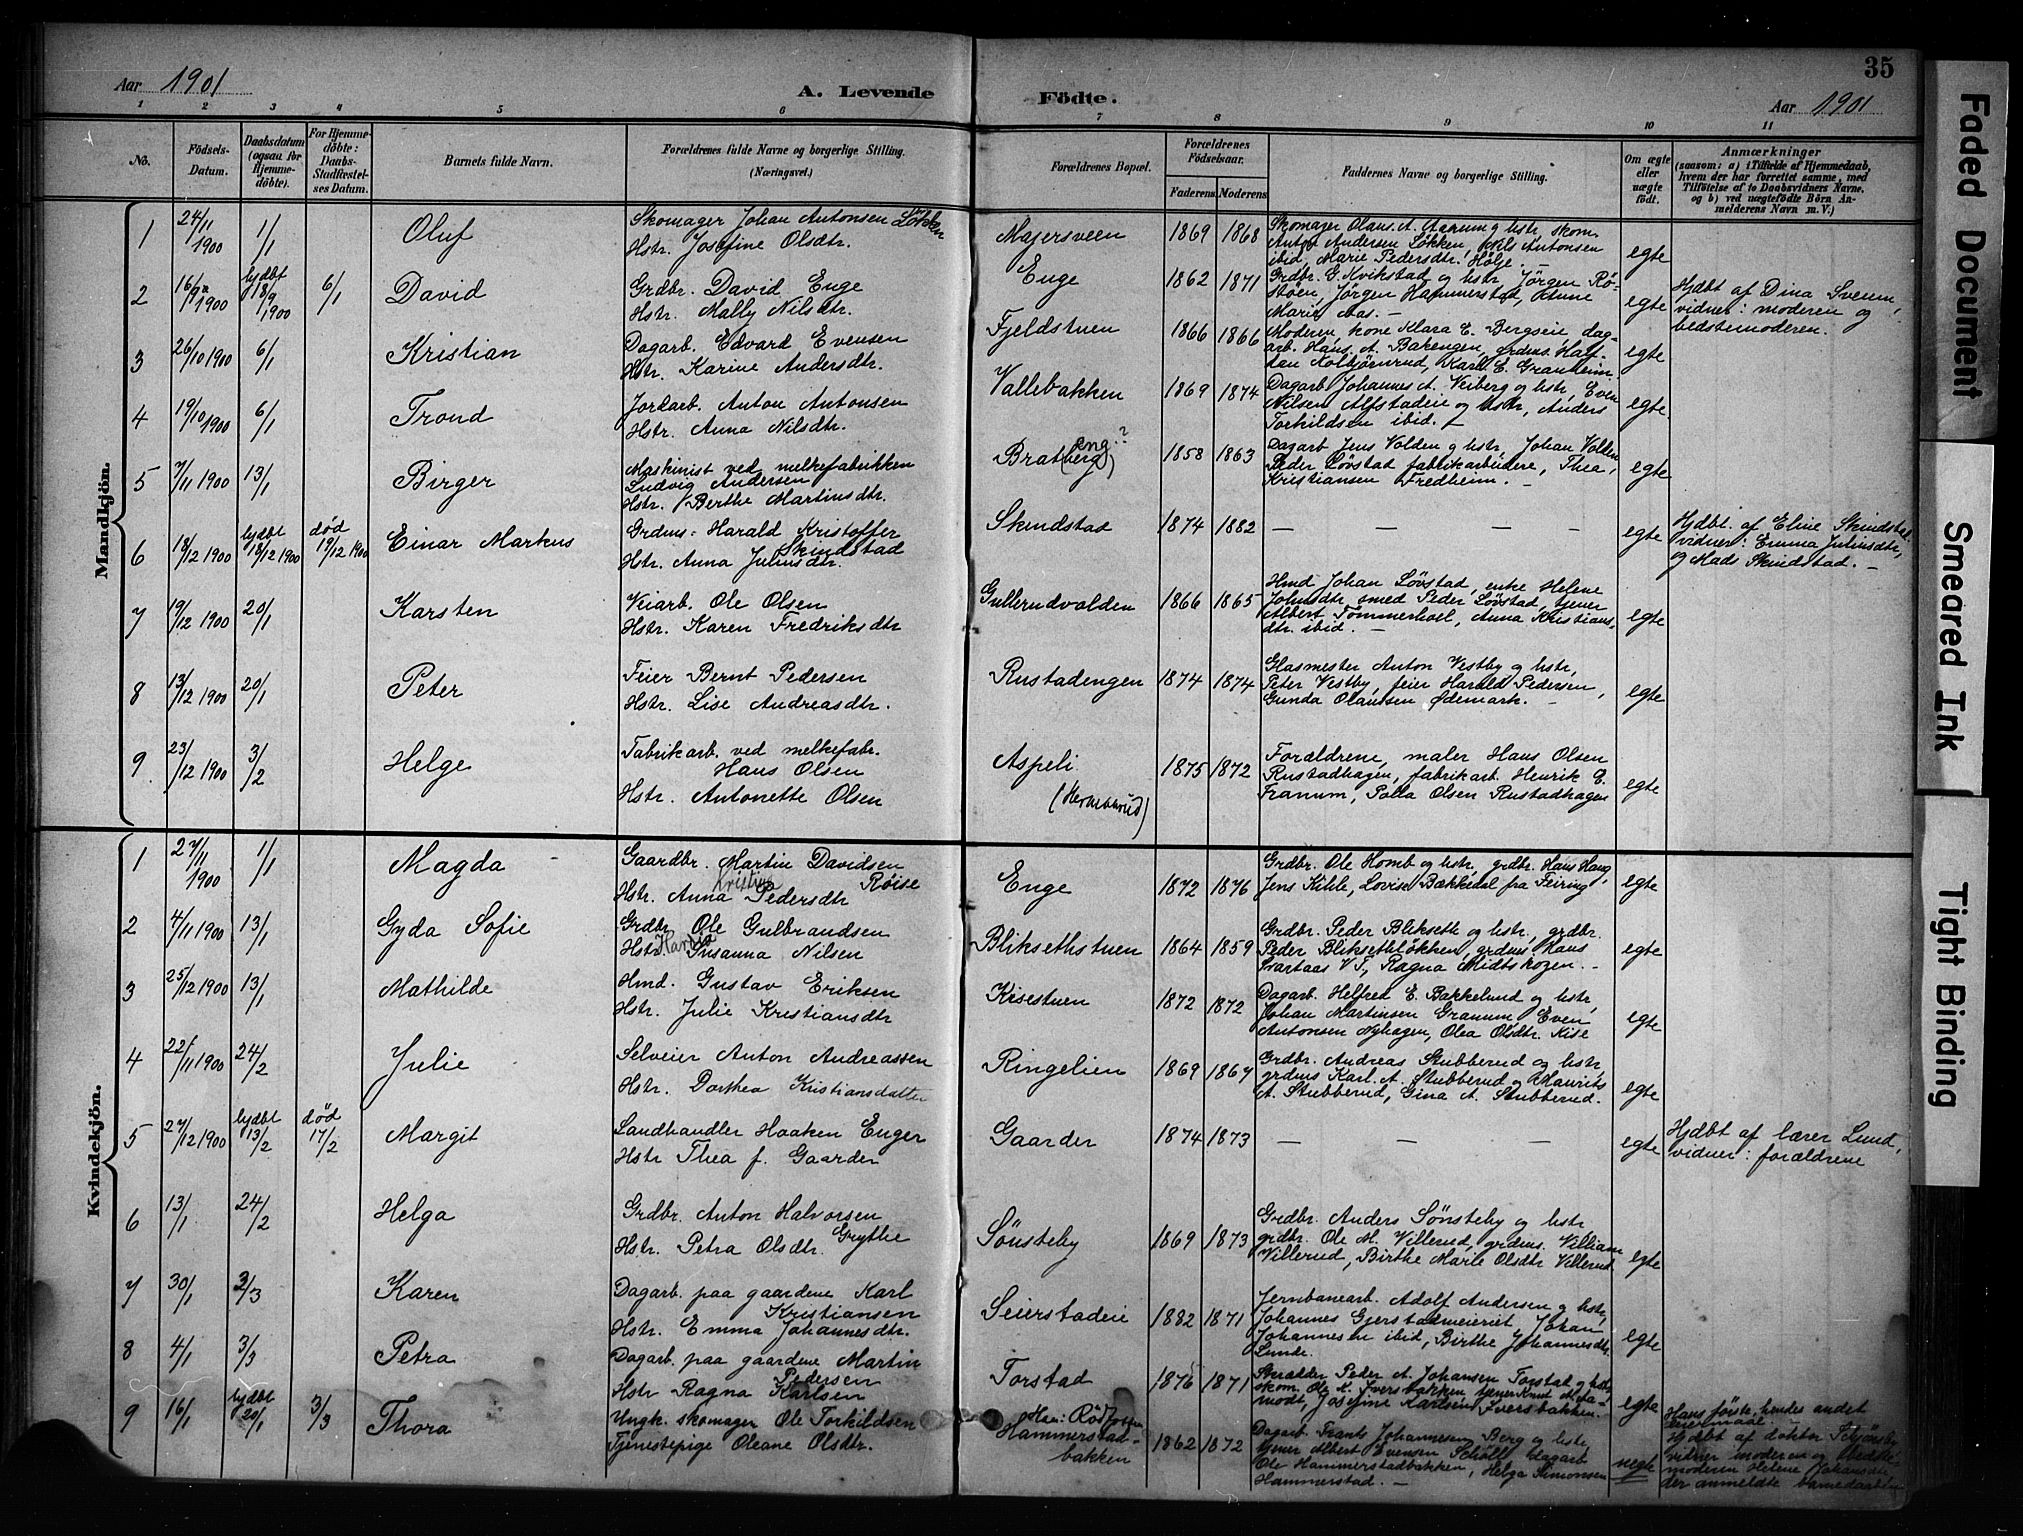 Aar 1901
A. Levende Födte.
Aar 1901
35
1 2 3 4 5 6 7 8 9 10 11
No.
Födsels-Datum.
Daabsdatum (ogsaa for Hjemmedöbte).
For Hjemmedöbte: Daabs-Stadfæstelses Datum.
Barnets fulde Navn.
Forældrenes fulde Navne og borgerlige Stilling. (Næringsvei.)
Forældrenes Bopæl.
Forældrenes Födselsaar.
Faderens Moderens
Faddernes Navne og borgerlige Stilling.
Om ægte eller uægte födt.
Anmærkninger
(saasom: a) i Tilfælde af Hjemmedaab, hvem der har forrettet samme, med Tilföielse af to Daabsvidners Navne, og b) ved uægtefödte Börn Anmelderens Navn m. V.)
Mandkjön.
1 24/11 1900 1/1 Oluf
Skomager Johan Antonsen Løkken
Hstr. Josefine Olsdtr.
Majersveen 1869 1868
Skomager Olaus A. Aarum g hstr, skom.
Anton Andersen Løkken, Nils Antonsen
ibid, Marie Pedersdtr. Hølje. –
egte
2 16/9 1900 hjdbt 18/9 1900 6/1 David
Grdbr. David Enge
Hstr. Mally Nilsdtr.
Enge 1862 1871
Grdbr. G. Kvikstad og hstr, Jörgen Rö-
støen, Jörgen Hammerstad, Anne
Marie Aas. –
egte
Hjdbt af Dina Sveum,
vidner: moderen og
bedstemoderen.
3 26/10 1900 6/1 Kristian
Dagarb. Edvard Evensen
Hstr. Karine Andersdtr.
Fjeldstuen 1866 1866
Moderen, kone Klara E. Bergseie, dag-
arb. Hans A. Bakengen, grdms. Half-
dan Kolbjørnrud, Karl E. Granheim
egte
4 19/10 1900 6/1 Trond
Jordarb. Anton Antonsen
Hstr. Anna Nilsdtr.
Vallebakken 1869 1874
Dagarb Johannes A. Veiberg og hstr, Even
Nilsen Alfstadeie og hstr, Anders
Torkildsen ibid. –
egte
5 7/11 1900 13/1 Birger
Maskinist ved melkefabrikken
Ludvig Andersen
Hstr. Berthe Martinsdtr.
Bratberg (eng?) 1858 1863
Dagarb Jens Volden g hstr, Johan Volden
Peder Løvstad fabrikarbeidere, Thea
Kristiansen Fredheim. –
egte
6 18/12 1900 hjdbt 18/12 1900 død 19/12 1900 Einar Markus
Grdms: Harald Kristoffer
Skindstad
Hstr. Anna Juliusdtr.
Skindstad 1874 1882
– – – –
egte
Hjdbt. af Eline Skindstad.
vidner: Emma Juliusdtr,
og Mads Skindstad. –
7 19/12 1900 20/1 Karsten
Veiarb. Ole Olsen
Hstr. Karen Fredriksdtr
Gullerudvolden 1866 1865
Hmd Johan Løvstad, enke Helene
Johnsdtr smed Peder Løvstad, tjener
Albert Tømmerhoel, Anna Kristians-
dtr. ibid. –
egte
8 13/12 1900 20/1 Peter
Feier Bernt Pedersen
Hstr. Lise Andreasdtr.
Rustadengen 1874 1874
Glasmester Anton Vestby og hstr,
Peter Vestby, feier Harald Pedersen,
Gunda Olausen Ødemark. –
egte
9 23/12 1900 3/2 Helge
Fabrikarb. ved melkefabr.
Hans Olsen
Hstr. Antonette Olsen
Aspeli 1875 1872
Forældrene, maler Hans Olsen
Rustadhagen, fabrikarb. Henrik E.
Franum, Polla Olsen Rustadhagen
egte
Kvindekjön.
1 27/11 1900 1/1 Magda
Gaardbr. Martin Davidsen
Røise
Hstr. Anna Kristine Pedersdtr
Enge 1872 1876
Grdbr. Ole Homb og hstr, grdbr. Hans Haug,
Jens Kihle, Lovise Bækkedal fra Feiring
egte
2 4/11 1900 13/1 Gyda Sofie
Grdbr. Ole Gulbrandsen
Hstr. Susanna Nilsen
Bliksethstuen 1864 1859
Grdbr. Peder Bliksett og hstr, grdbr.
Peder Bliksethløkken, grdms. Hans
Svartaas V.T, Ragna Midtskogen. –
egte
3 25/12 1900 13/1 Mathilde
Hmd. Gustav Eriksen
Hstr. Julie Kristiansdtr
Kisestuen 1872 1872
Dagarb. Helfred E. Bakkelund og hstr,
Johan Martinsen Granum, Even
Antonsen Nyhagen, Olea Olsdtr. Kise
egte
4 22/11 1900 24/2 Julie
Selveier Anton Andreassen
Hstr. Dorthea Kristiansdatter
Ringelien 1869 1867
Grdbr. Andreas Stubberud og hstr,
grdms Karl A. Stubberud og Maurits
A. Stubberud, Gina A. Stubberud.
egte
5 27/12 1900 hjdbt 13/2 død 17/2 Margit
Landhandler Haaken Enger
Hstr Thea f. Gaarder
Gaarder 1874 1873
– – –
egte
Hjdbt af lærer Lund,
vidner: forældrene
6 13/1 24/2 Helga
Grdbr. Anton Halvorsen
Grythe
Hstr. Petra Olsdtr.
Sønsteby 1869 1873
Grdbr. Anders Sønsteby og hstr,
grdbr. Ole M. Villerud, grdms. Villiam
Villerud, Birthe Marie Olsdtr Villerud
egte
7 30/1 3/3 Karen
Dagarb. paa gaardene Karl
Kristiansen
Hstr. Emma Johannesdtr.
Seierstadeie 1882 1871
Jernbanearb. Adolf Andersen g hstr,
Johannes Gjerstadmeieriet, Johan
Johannesen ibid, Birthe Johannesdtr.
Lunde.
egte
8 4/1 3/3 Petra
Dagarb. paa gaardene Martin
Pedersen
Hstr Ragna Karlsen
Torstad 1876 1871
Skrædder Peder A. Johansen Torstad og hstr,
skom. Ole K. Iversbakken, tjener Knut
Josefine Karlsen Iversbakken.
egte
9 16/1 hjdbt 20/1 3/3 Thora
Ungk. skomager Ole Torkildsen
Tjenestepige Oleane Olsdtr.
Hammerstad-
bakken
1862 1872
Dagarb. Frants Johannesen Berg og hstr,
tjener Albert Evensen Schøll, dagarb
Ole Hammerstadbakken, Helga Simonsen
Hammerstad. –
uegte
Hans første, hendes andet
leiermaal. –
Hjdbt af doktor
vidner moderen og bedste-
moderen Helene Johansdtr
der anmeldte barnedaaben
Faded Document
Smeared Ink
Tight Binding